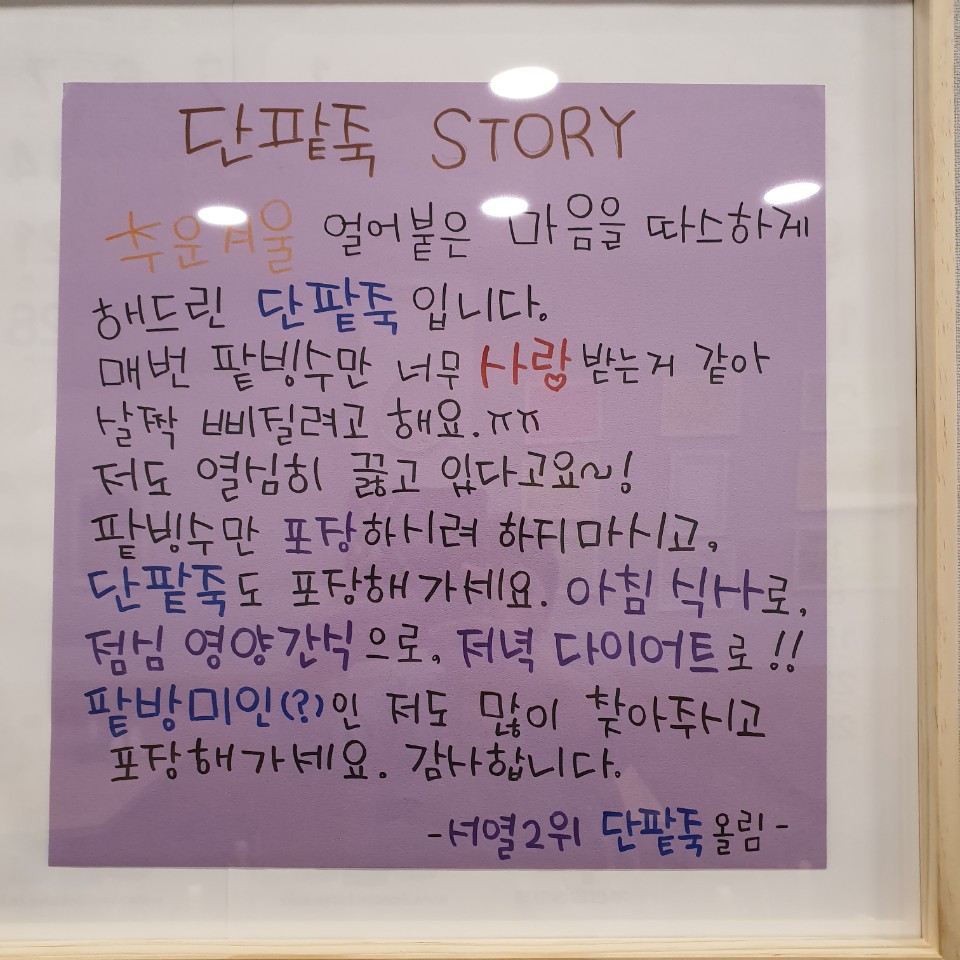 단팥죽 STORY
추운겨울 얼어붙은 마음을 따스하게
해드린 단팥죽 입니다.
매번 팥빙수만 너무 사랑 받는거 같아
살짝 삐질려고 해요.ㅠㅠ
저도 열심히 끓고 있다고요~!
팥빙수만 포장하시려 하지마시고,
단팥죽도 포장해 가세요. 아침 식사로,
점심 영양간식으로, 저녁 다이어트로!!
팥방미인(?)인 저도 많이 찾아주시고
포장해가세요. 감사합니다.
-서열2위 단팥죽올림-